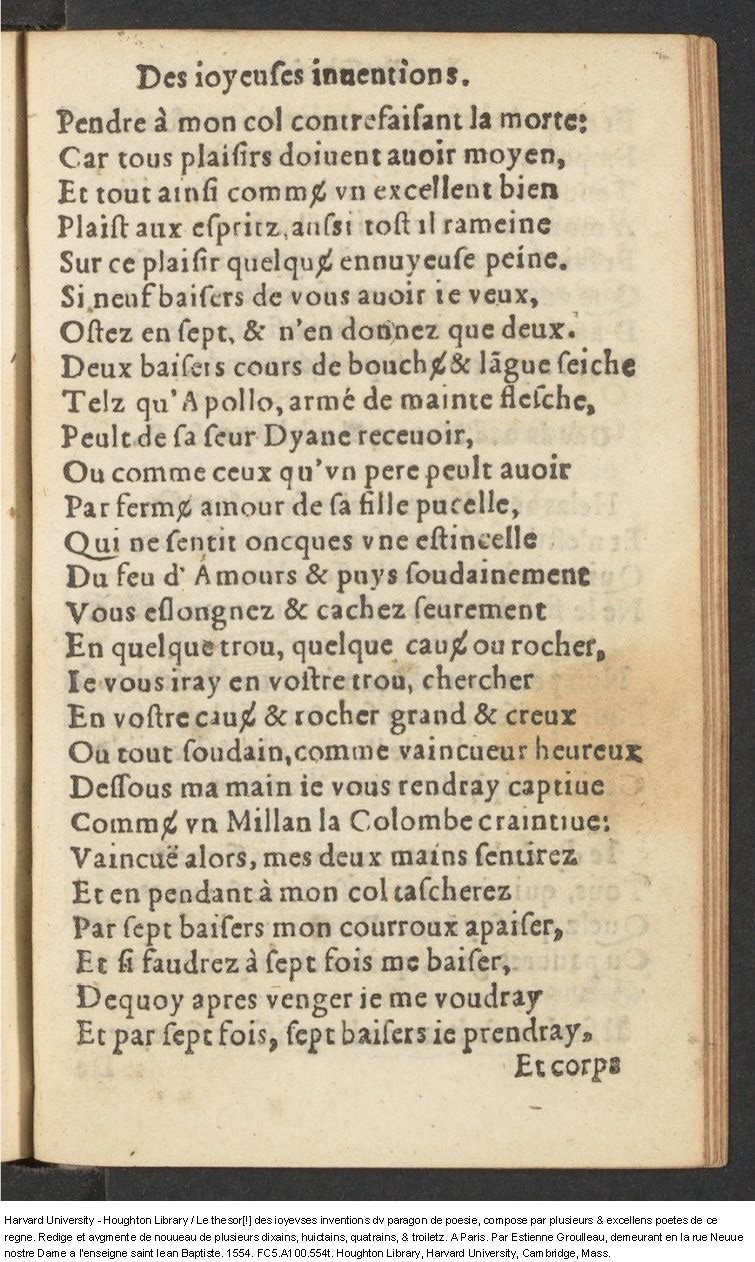 Des ioyeuſes inuentions.
Pendre à mon col contrefaiſant la morte:
Car tous plaiſirs doiuent auoir moyen,
Et tout ainſi commɇ vn excellent bien
Plaiſt aux eſpritz, auſsi toſt il rameine
Sur ce plaiſir quelquɇ ennuyeuſe peine.
Si neuf baiſers de vous auoir ie veux,
Oſtez en ſept, & n'en donnez que deux.
Deux baiſers cours de bouchɇ & lãgue ſeiche
Telz qu'Apollo, armé de mainte fleſche,
Peult de ſa ſeur Dyane receuoir,
Ou comme ceux qu'vn pere peult auoir
Par fermɇ amour de ſa fille pucelle,
Qui ne ſentit oncques vne eſtincelle
Du feu d'Amours & puys ſoudainement
Vous eſlongnez & cachez ſeurement
En quelque trou, quelque cauɇ ou rocher,
Ie vous iray en voſtre trou, chercher
En voſtre cauɇ & rocher grand & creux
Ou tout ſoudain, comme vaincueur heureux
Deſſous ma main ie vous rendray captiue
Commɇ vn Millan la Colombe craintiue:
Vaincuë alors, mes deux mains ſentirez
Et en pendant à mon col taſcherez
Par ſept baiſers mon courroux apaiſer,
Et ſi faudrez à ſept fois me baiſer,
Dequoy apres venger ie me voudray
Et par ſept fois, ſept baiſers ie prendray,
Et corps
Harvard University - Houghton Library / Le thesor[!] des ioyevses inventions dv paragon de poesie, compose par plusieurs & excellens poetes de ce
regne. Redige et avgmente de nouueau de plusieurs dixains, huictains, quatrains, & troiletz. A Paris. Par Estienne Groulleau, demeurant en la rue Neuue
nostre Dame a l'enseigne saint Iean Baptiste. 1554. FC5.A100.554t. Houghton Library, Harvard University, Cambridge, Mass.